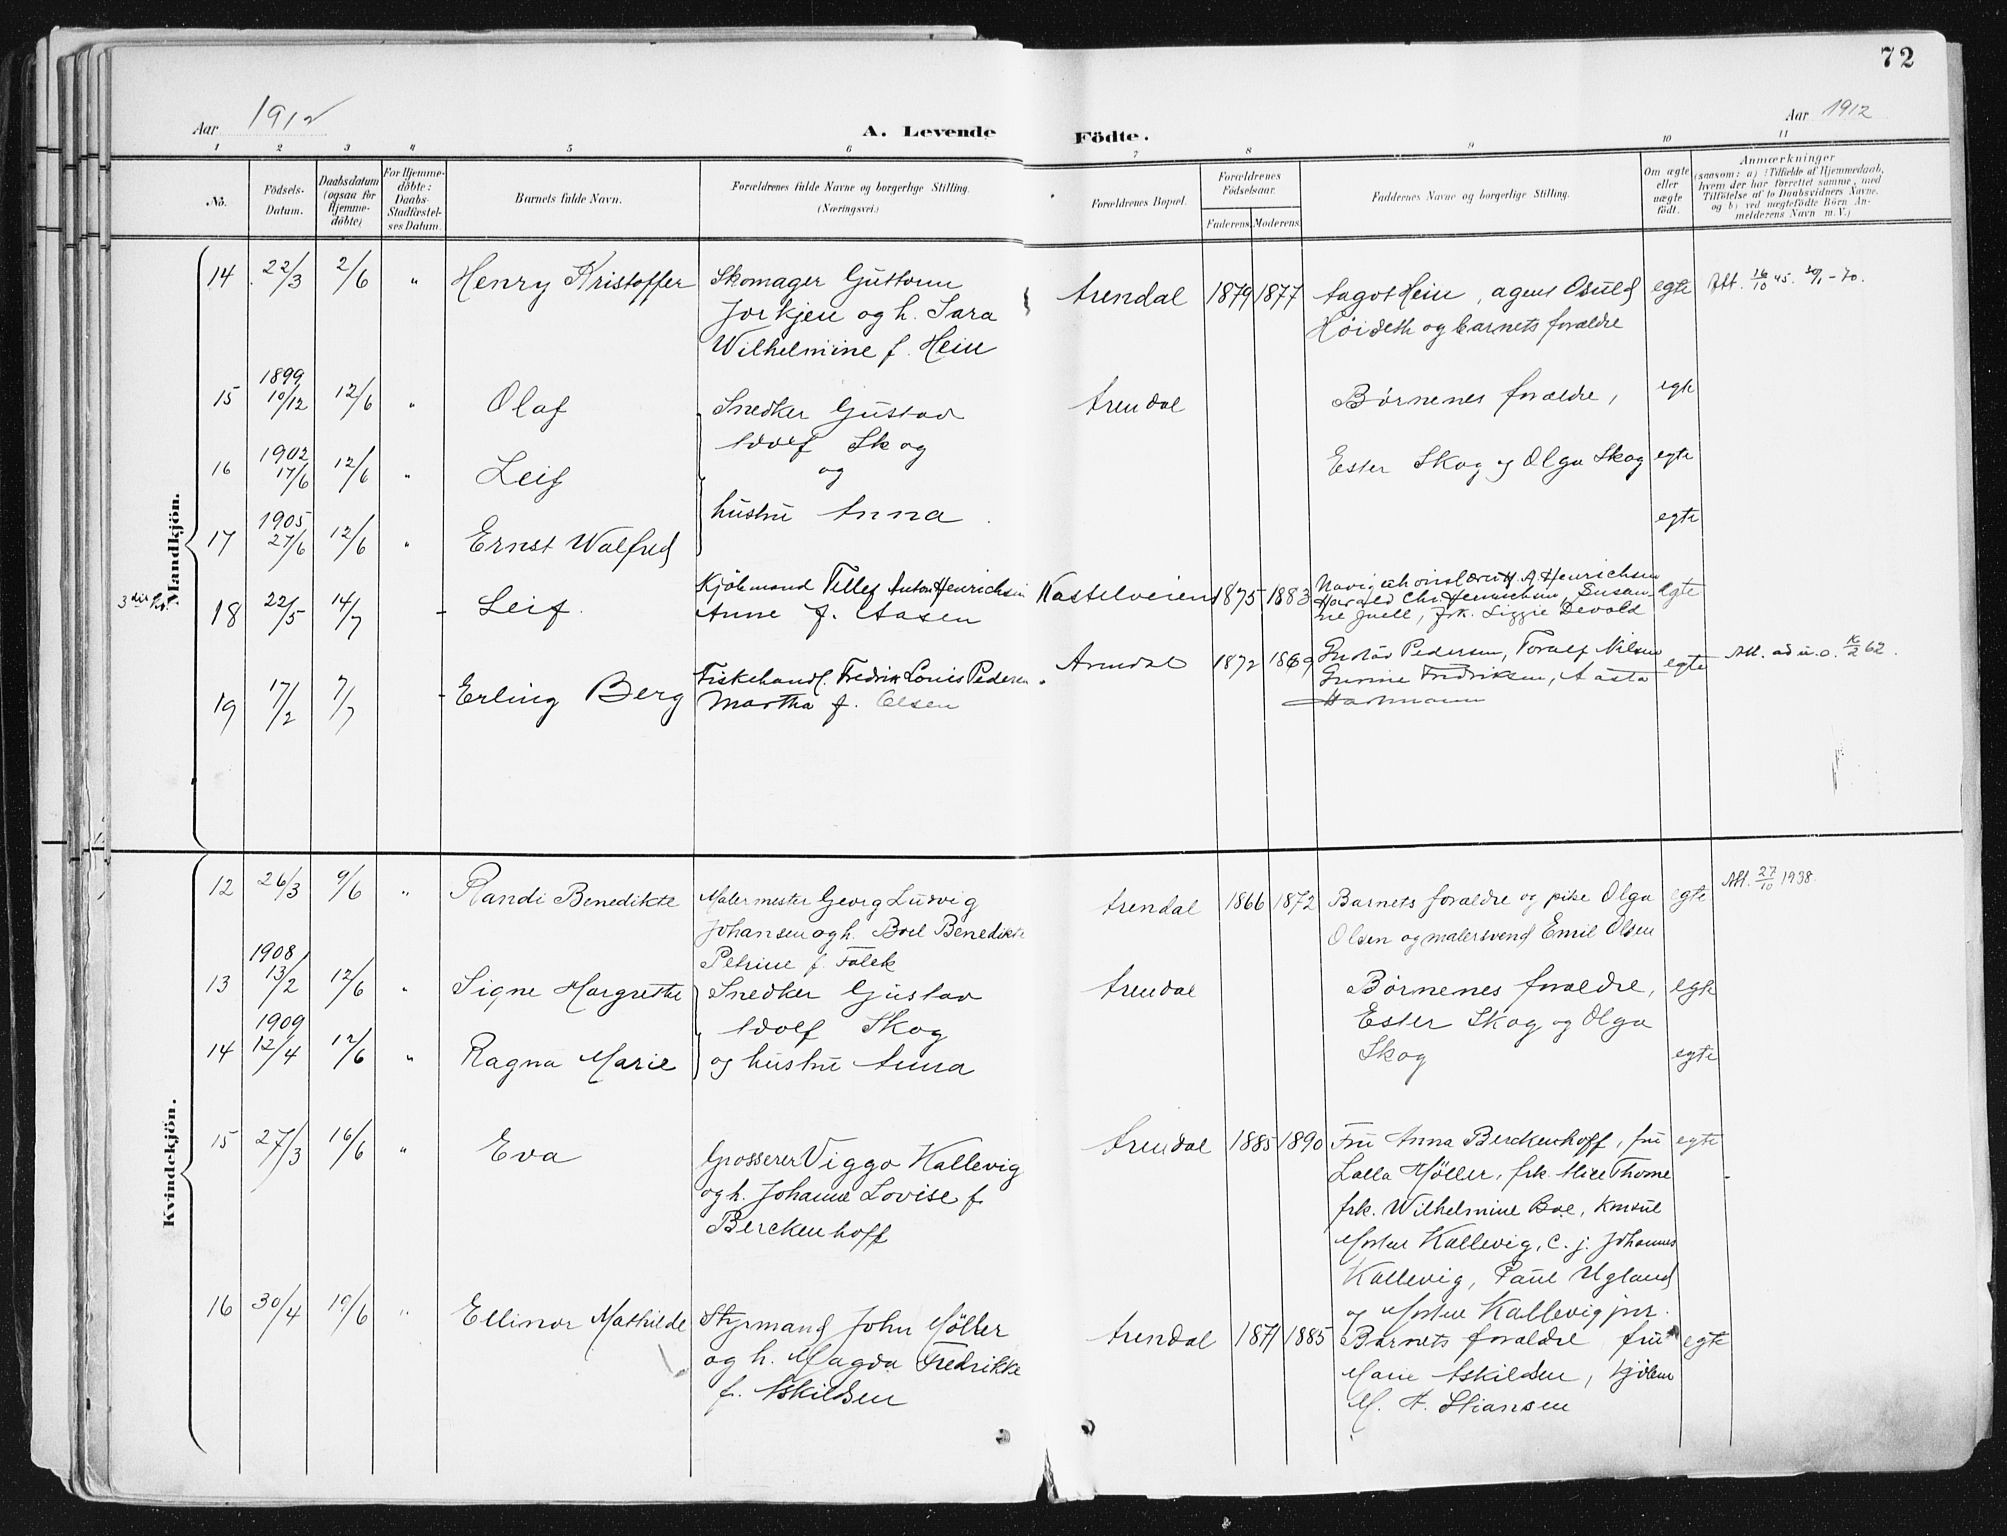 72
Aar 1912
A. Levende Födte.
Aar 1912
1 2 3 4 5 6 7 8 9 10 11
No.
Födsels-
Datum.
Daabsdatum
(ogsaa for
Hjemme-
döbte)
For Hjemme-
döbte:
Daabs-
Stadfæstel-
ses Datum.
Barnets fulde Navn.
Forældrenes fulde Navne og borgerlige Stilling.
(Næringsvei.)
Forældrenes Bopæl.
Forældrenes
Födselsaar.
Faderens. Moderens.
Faddernes Navne og borgerlige Stilling.
Om ægte
eller
uægte
födt.
Anmærkninger
(saasom: a) i Tilfælde af Hjemmedaab,
hvem der har forrettet samme, med
Tilföielse af to Daabsvidners Navne.
og b) ved uægtefödte Börn An-
melderens Navn m. V.)
Mandkjön.
14 22/3 2/6 " Henry Kristoffer Skomager Guttorm Arendal 1879 1877 Aagot Hein, agent Osuld egte Att. 16/10 45. 30/1 - 70.
Jorkjen og h. Sara Höideth og barnets forældre
Wilhelmine f. Hein
15 1899 10/12 12/6 " Olaf Snedker Gustav Arendal Børnenes forældre, egte
Adolf Skog
16 1902 17/6 12/6 " Leif og Ester Skog og Olga Skog egte
hustru Anna
17 1905 27/6 12/6 " Ernst Walfred egte
18 22/5 14/7 - Leif. Kjöbmand Tellef Anton Henrichsen Kastelveien 1875 1883 H. A. Henrichsen egte
Anne f. Aasen Harald Chr. Henrichsen, Susan-
ne Juell, frk. Lizzie Devold
19 17/2 7/7 - Erling Berg Fiskehandl. Fredrik Louis Pedersen Arendal 1872 1869 Gustav Pedersen, Toralf Nilsen egte Att. ad u.o. 62.
Martha f. Olsen Gunine Fredriksen, Aasta
Hartmann
Kvindekjön.
12 26/3 9/6 " Randi Benedikte Malermester Georg Ludvig Arendal 1866 1872 Barnets forældre og pike Olga egte Att. 27/10 1938.
Johansen og h. Boel Benedikte Olsen og malersvend Emil Olsen
Petrine f. Falck
13 1908 13/2 12/6 " Signe Margrethe Snedker Gustav Arendal Børnenes forældre, egte
Adolf Skog Ester Skog og Olga
14 1909 12/4 12/6 " Ragna Marie og hustru Anna Skog egte
15 27/3 16/6 " Eva Grosserer Viggo Kallevig Arendal 1885 1890 Fru Anna Berckenhoff, fru egte
og h. Johanne Lovise f. Lalla Möller, frk. Alice Thorne
Berckenhoff frk. Wilhelmine Boe, konsul
Morten Kallevig, C. j. Johannes
Kallevig, Paul Ugland
og Morten Kallevig jnr.
16 30/4 19/6 " Ellinor Mathilde Styrmand John Möller Arendal 1871 1885 Barnets forældre fru egte
og h. Magda Fredrikke Marie Askildsen, kjöbm
f. Askildsen M. A. Stiansen